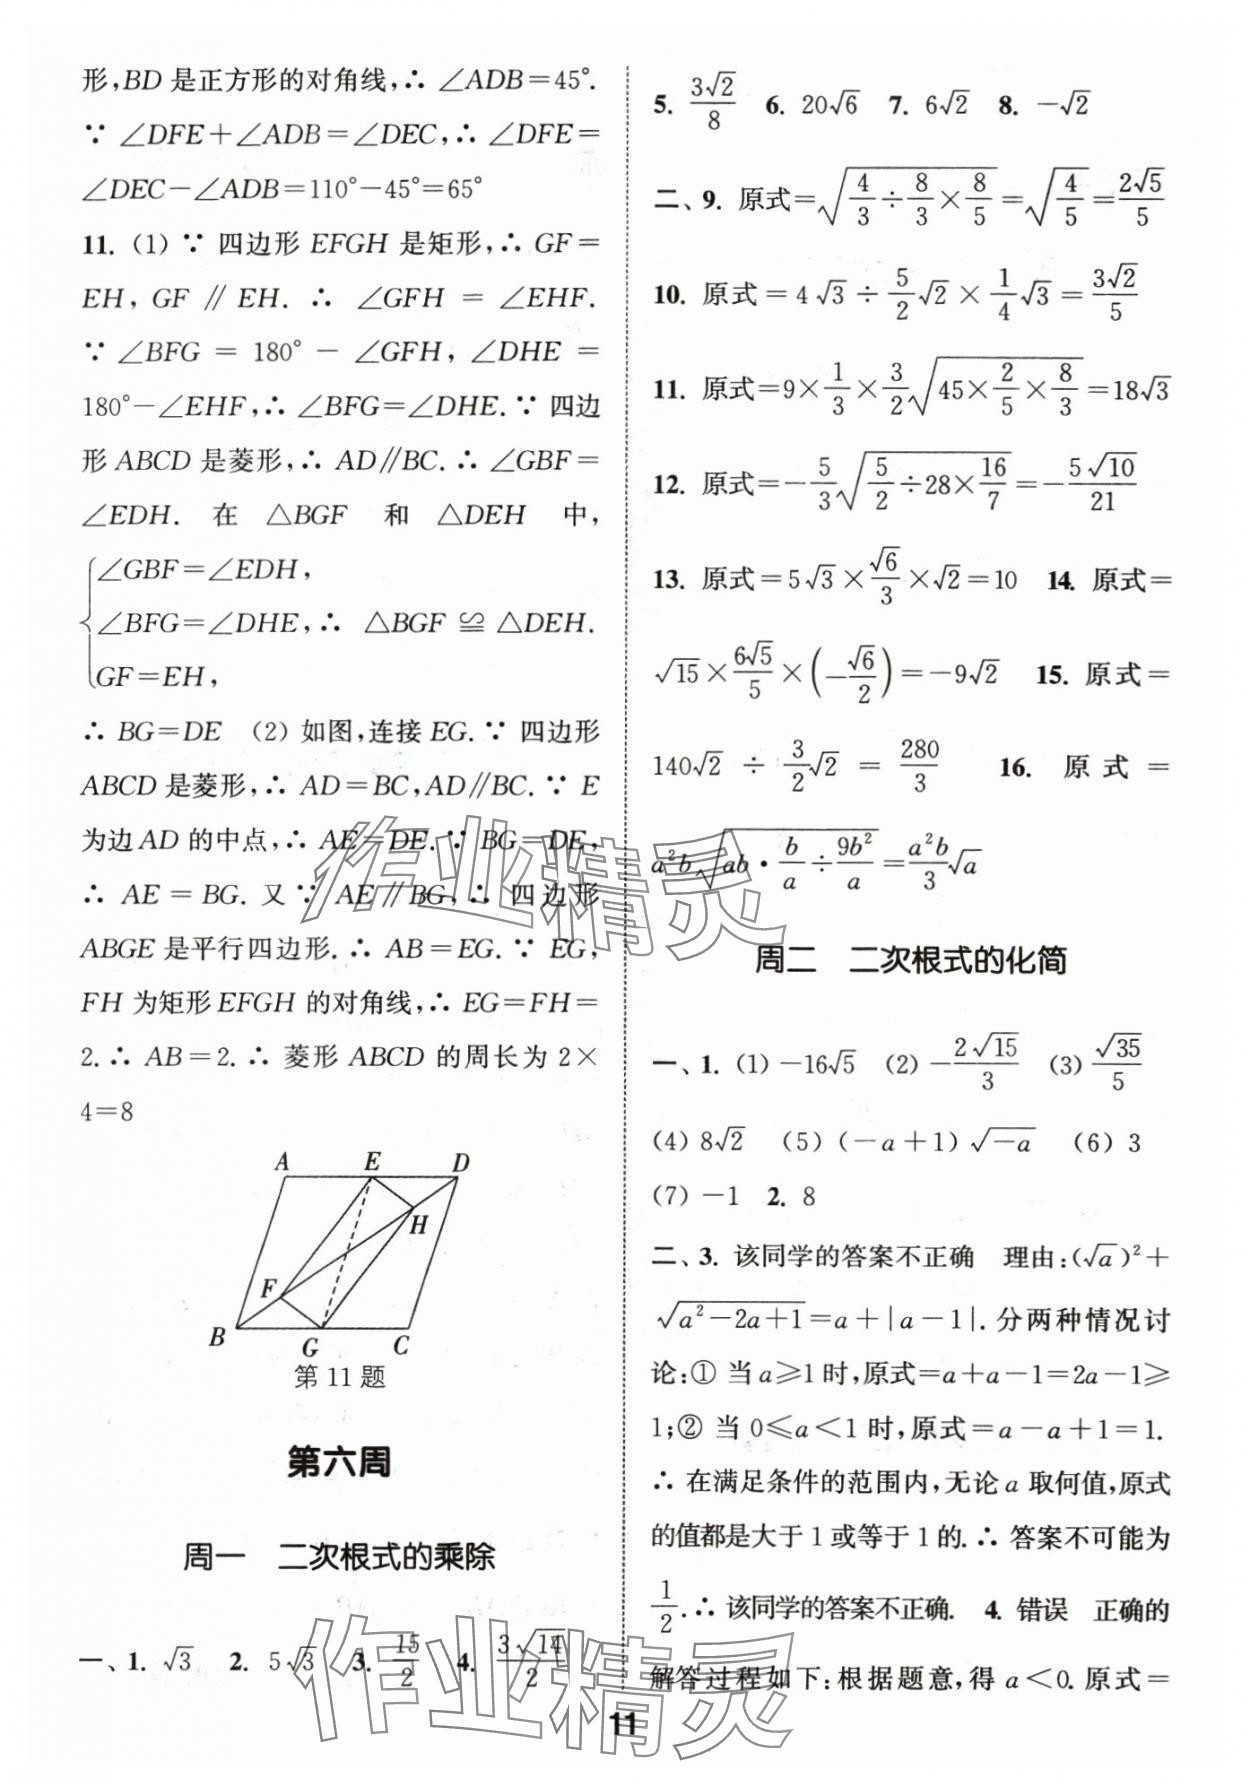 形,BD 是正方形的对角线,∴ ∠ADB=45°.
∵ ∠DFE+∠ADB=∠DEC,∴ ∠DFE=
∠DEC-∠ADB=110°-45°=65°
11. (1) ∵ 四边形 EFGH 是矩形,∴ GF=
EH, GF ∥ EH. ∴ ∠GFH = ∠EHF.
∵ ∠BFG = 180° - ∠GFH, ∠DHE =
180°-∠EHF,∴ ∠BFG=∠DHE. ∵ 四边
形 ABCD 是菱形,∴ AD∥BC. ∴ ∠GBF=
∠EDH. 在 △BGF 和 △DEH 中,
∠GBF=∠EDH,
∠BFG=∠DHE,∴ △BGF ≌ △DEH.
GF=EH,
∴ BG=DE (2) 如图,连接 EG. ∵ 四边形
ABCD 是菱形,∴ AD=BC,AD∥BC. ∵ E
为边 AD 的中点,∴ AE=DE. ∵ BG=DE,
∴ AE = BG. 又 ∵ AE∥BG,∴ 四边形
ABGE 是平行四边形. ∴ AB=EG. ∵ EG,
FH 为矩形 EFGH 的对角线,∴ EG=FH=
2. ∴ AB=2. ∴ 菱形 ABCD 的周长为 2×
4=8
A E D
H
F
B G C
第 11 题
第六周
周一 二次根式的乘除
一、1. √3 2. 5√3 3. 15/2 4. 3√14/2
5. 3√2/8 6. 20√6 7. 6√2 8. -√2
二、9. 原式=√(4/3÷8/3×8/5)=√(4/5)=2√5/5
10. 原式=4√3÷5/2√2×1/4√3=3√2/5
11. 原式=9×1/3×3/2√(45×2/5×8/3)=18√3
12. 原式=-5/3√(5/2÷28×16/7)=-5√10/21
13. 原式=5√3×√6/3×√2=10 14. 原式=
√15×6√5/5×(-√6/2)=-9√2 15. 原式=
140√2 ÷ 3/2√2 = 280/3 16. 原式=
a²b√(ab·b/a÷9b²/a)=a²b/3√a
周二 二次根式的化简
一、1. (1) -16√5 (2) -2√15/3 (3) √35/5
(4) 8√2 (5) (-a+1)√-a (6) 3
(7) -1 2. 8
二、3. 该同学的答案不正确 理由:(√a)²+
√(a²-2a+1)=a+|a-1|. 分两种情况讨
论:① 当 a≥1 时,原式=a+a-1=2a-1≥
1;② 当 0≤a<1 时,原式=a-a+1=1.
∴ 在满足条件的范围内,无论 a 取何值,原式
的值都是大于 1 或等于 1 的. ∴ 答案不可能为
1/2. ∴ 该同学的答案不正确. 4. 错误 正确的
解答过程如下:根据题意,得 a<0. 原式=
11
作业精灵
作业精灵